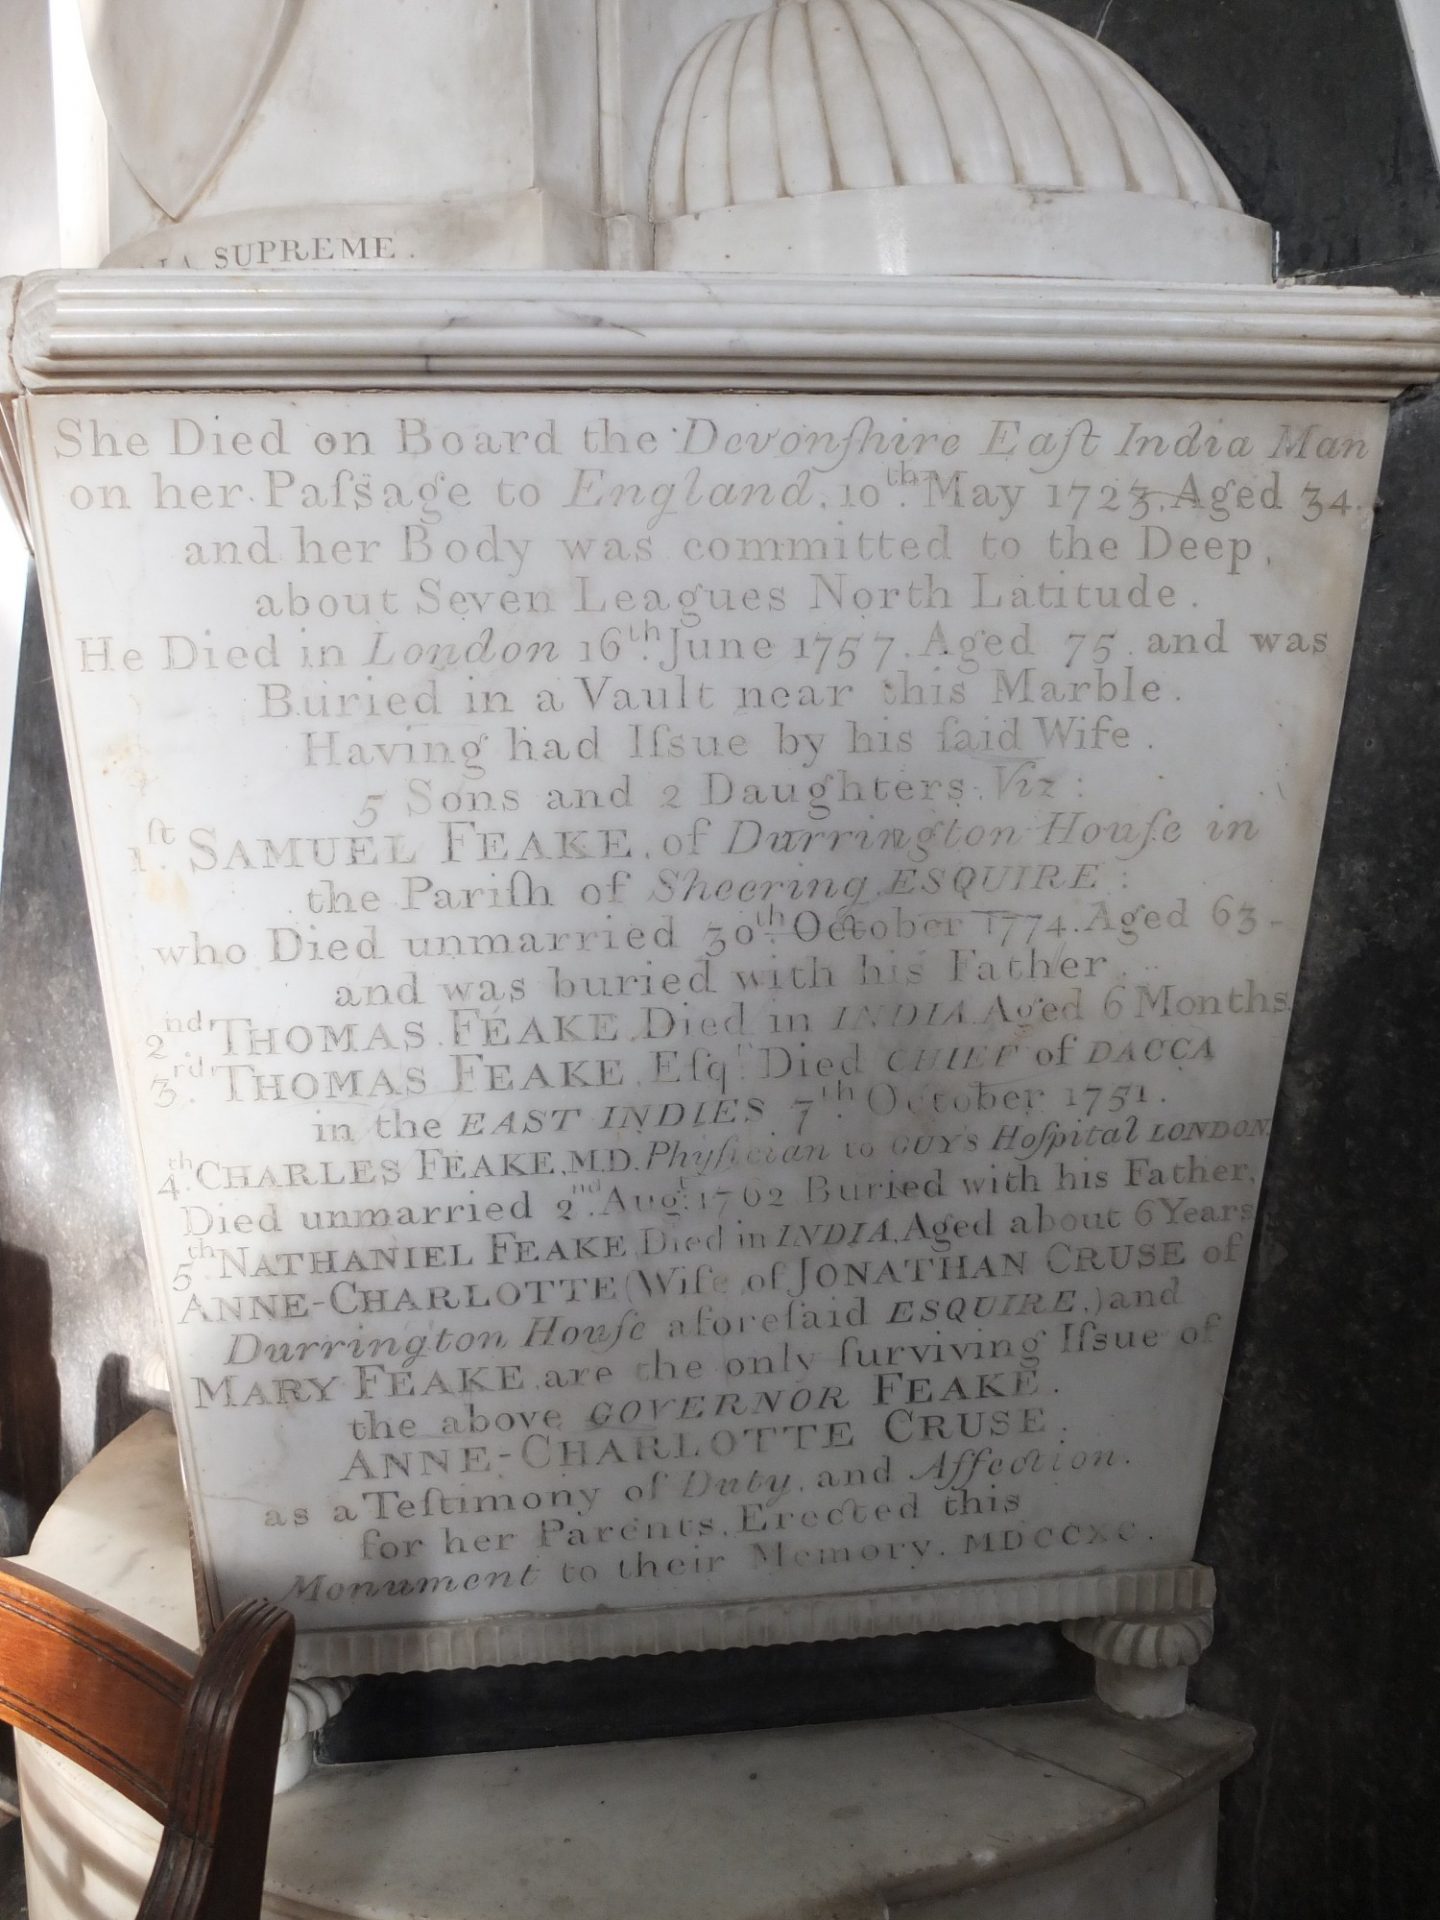 SUPREME.
She Died on Board the Devonſhire Eaſt India Man
on her Paſsage to England, 10th. May 1723, Aged 34.
and her Body was committed to the Deep,
about Seven Leagues North Latitude.
He Died in London 16th. June 1757. Aged 75. and was
Buried in a Vault near this Marble.
Having had Iſsue by his ſaid Wife.
5 Sons and 2 Daughters. Viz:
1ſt. SAMUEL FEAKE, of Durrington Houſe in
the Pariſh of Sheering ESQUIRE:
who Died unmarried 30th. October 1774. Aged 63-
and was buried with his Father.
2nd. THOMAS FEAKE, Died in INDIA Aged 6 Months
3rd. THOMAS FEAKE, Eſqr. Died CHIEF of DACCA
in the EAST INDIES 7th. October 1751.
4th. CHARLES FEAKE, M.D. Phyſician to GUYS Hoſpital LONDON.
Died unmarried 2nd. Augt. 1762 Buried with his Father,
5th NATHANIEL FEAKE Died in INDIA, Aged about 6 Years
ANNE-CHARLOTTE (Wife of JONATHAN CRUSE of
Durrington Houſe aforeſaid ESQUIRE,) and
MARY FEAKE, are the only ſurviving Iſsue of
the above GOVERNOR FEAKE.
ANNE-CHARLOTTE CRUSE.
as a Teſtimony of Duty, and Affection.
for her Parents, Erected this
Monument to their Memory. MDCCXC.